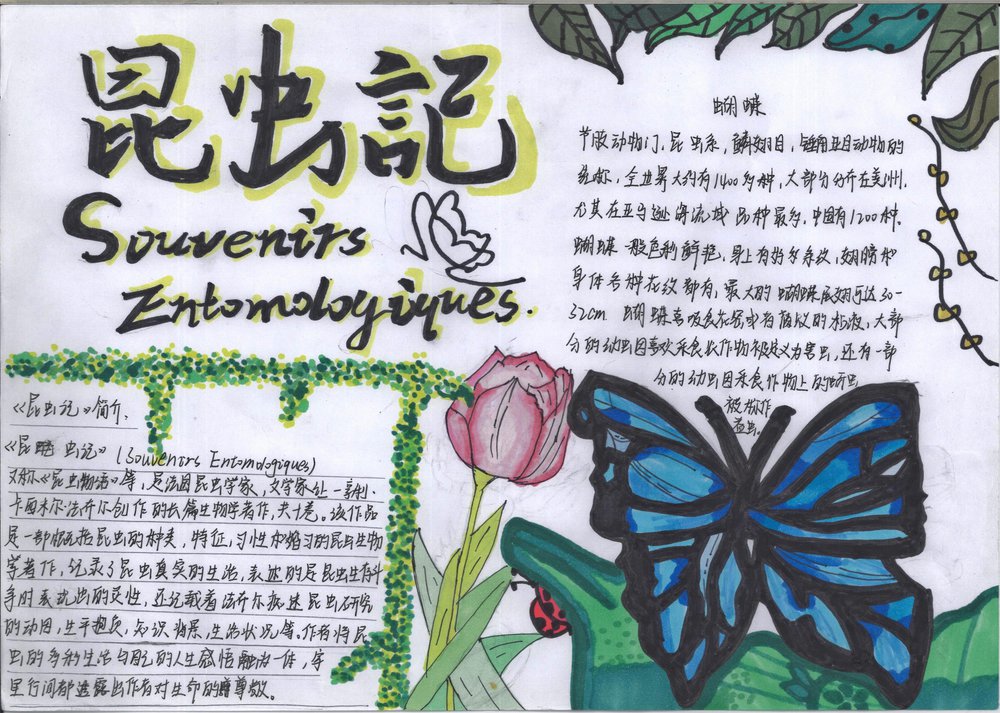 昆虫記
Souvenirs
Entomologiques.
蝴蝶
节肢动物门，昆虫系，鳞翅目，锤角亚目动物的
统称，全世界大约有1400多种，大部分分开在美州，
尤其在亚马逊海流域品种最多，中国有1200种，
蝴蝶一般色彩鲜艳，身上有好多条纹，翅膀和
身体各种花纹都有，最大的蝴蝶展翅可达30-
32cm 蝴蝶喜吸食花密或有腐败的粘液，大部
分的幼虫因喜欢采食农作物被定义为害虫，还有一部
分的幼虫因采食作物上的蚜虫
被称作
益虫。
《昆虫记》简介.
《昆虫记》(Souvenirs Entomologiques)
又称《昆虫物语》等，是法国昆虫学家，文学家让-亨利·
卡西米尔·法布尔创作的长篇生物学著作，共十卷。该作品
是一部概括昆虫的种类，特征，习性和婚习的昆虫生物
学著作，记录了昆虫真实的生活，表述的是昆虫生存斗
争时表现出的灵性，还记载着法布尔痴迷昆虫研究
的动因，生平抱负，知识背景，生活状况等。作者将昆
虫的多彩生活与自己的人生感悟融为一体，字
里行间都透露出作者对生命的尊敬。